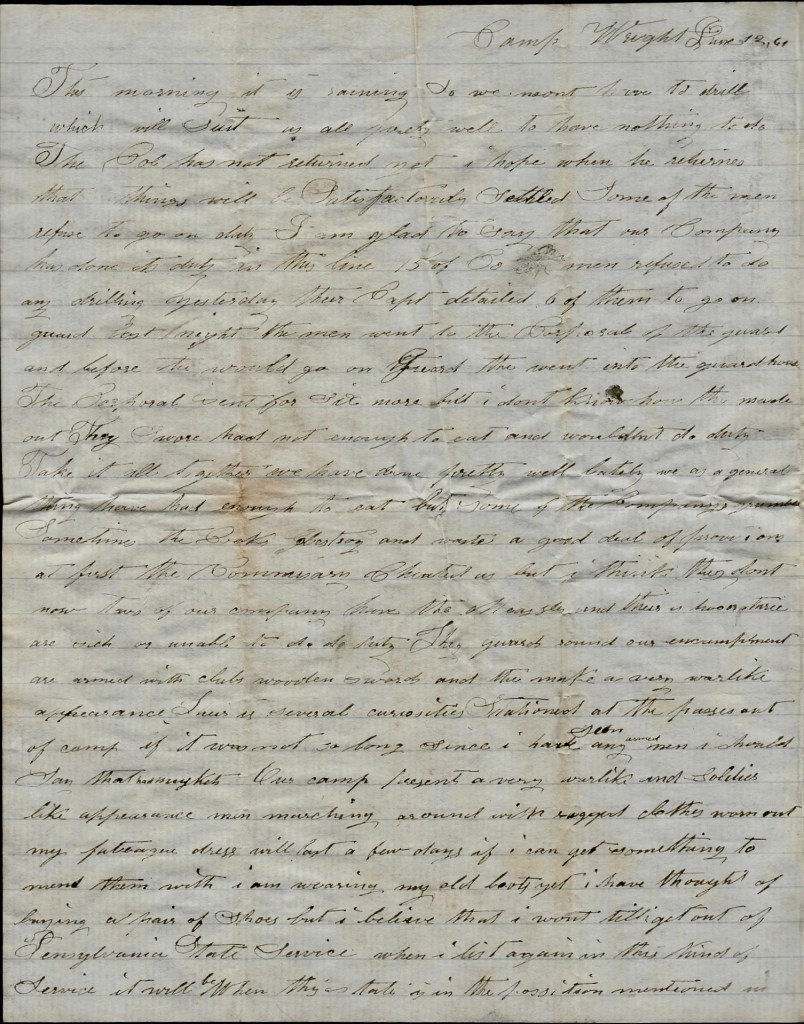 Camp Wright June 12, 61
This morning it is raining so we wont have to drill
which will suit us all prety well to have nothing to do
The Col has not returned yet i hope when he returnes
that things will be Satisfactorily Settled Some of the men
refuse to go on duty I am glad to say that our Company
has done its duty in this line 15 of Co men refused to do
any drilling yesterday their Capt detailed 6 of them to go on
guard last night the men went to the Corporal of the guard
and before the would go on Guard the went into the guardhouse
The Corporal sent for six more but i dont know how the made
out They swore had not enough to eat and wouldnt do duty
Take it all together we have done pretty well lately we as a general
thing have had enough to eat but some of the Companys grumble
Sometimes the Cooks destroy and waste a good deal of provisions
at first the Commisary Cheated us but i think they dont
now two of our company have the measles and their is
are sick or unable to do do duty The guards round our encampment
are armed with clubs wooden swords and the make a very warlike
appearance is several curiosities Stationed at the passes out
of camp if it was not so long since i have seen any armed men i should
Say that had muskets Our camp presents a very warlike and Soldier
like appearance men marching around with ragged clothes worn out
my fateague dress will last a few days if i can get something to
mend them with i am wearing my old boots yet i have thought of
buying a pair of Shoes but i believe that i wont till i get out of
Pensylvania State Service when i list again in this kind of
Service it will be When this state is in the possition mentioned in